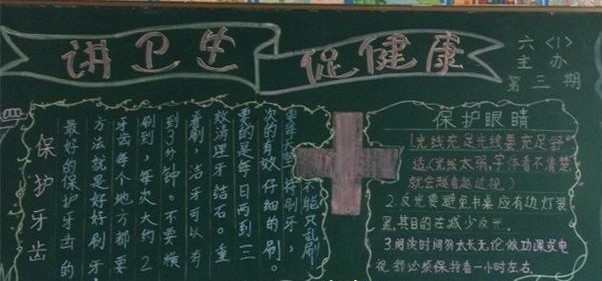 讲卫生
促健康
六〈1〉
主办
第三期
保护牙齿
最好的保护牙齿的
方法就是好好刷牙
牙齿每个地方都要
刷到，每次大约2
到3分钟。不要横
着刷，洁牙可以有
效清理牙结石。重
要的是每日两到三
次的有效仔细的刷。
刷牙，
不能只乱刷
保护眼睛
1.光线充足光线要充足舒
适(光线太弱，字体看不清楚
就会越看越近视)
2.反光要避免书桌应有边灯装
置,其目的在减少反光.
3.阅读时间勿太长无论做功课或电
视,都必须保持看一小时左右.